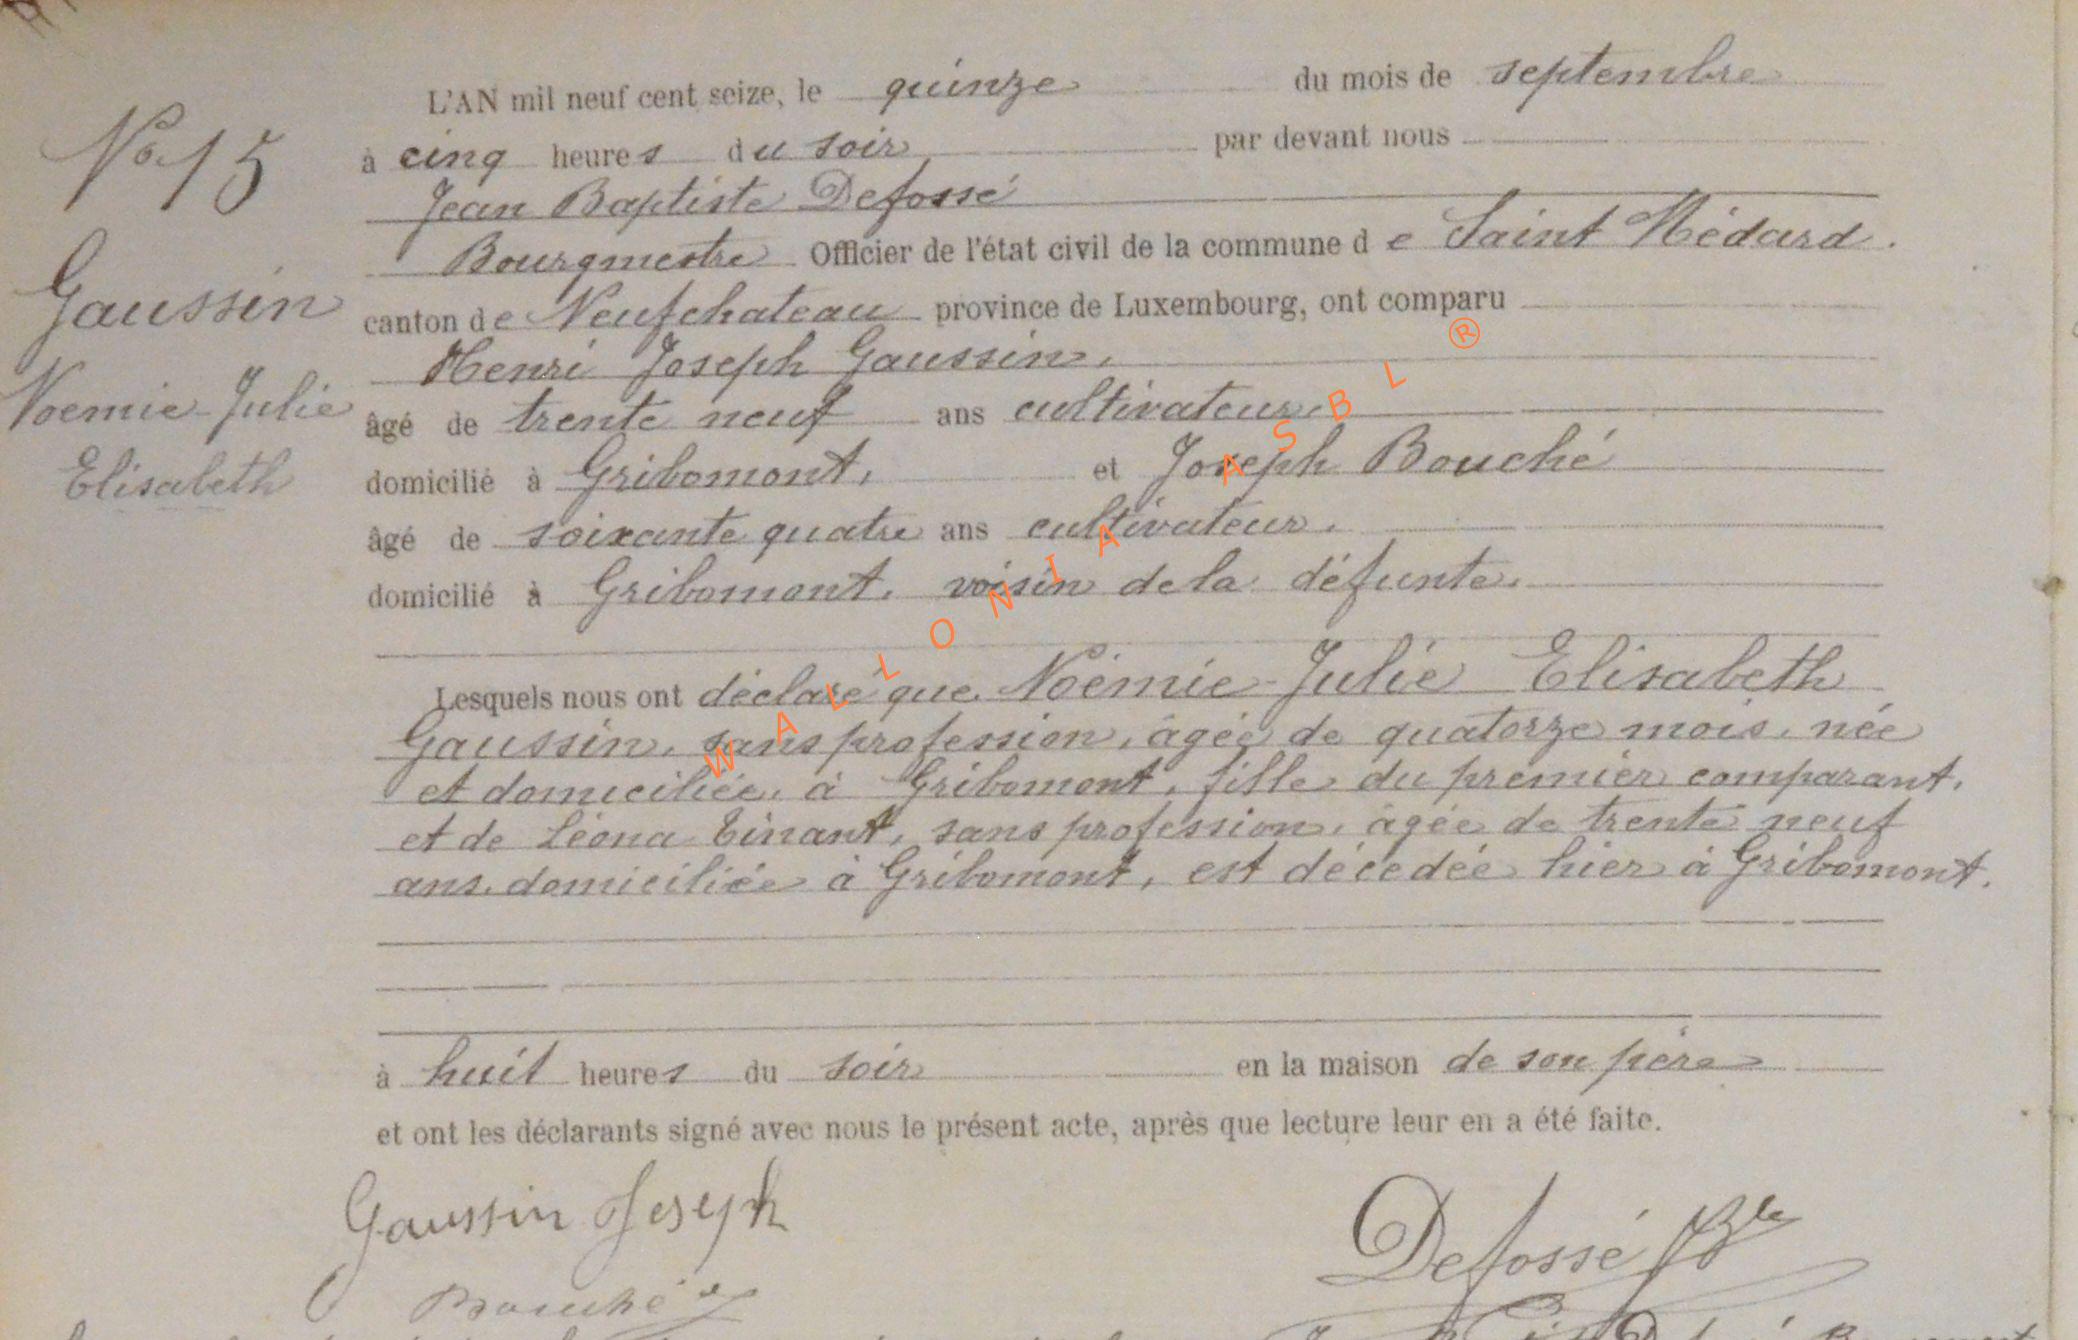 No 15
Gaussin
Noémie-Julie
Elisabeth
L'AN mil neuf cent seize, le quinze du mois de septembre
à cinq heures du soir par devant nous
Jean Baptiste Defossé
Bourgmestre Officier de l'état civil de la commune de Saint Médard.
canton de Neufchateau province de Luxembourg, ont comparu
Henri Joseph Gaussin,
âgé de trente neuf ans cultivateur,
domicilié à Gribomont, et Joseph Bouché
âgé de soixante quatre ans cultivateur,
domicilié à Gribomont, voisin de la défunte,
Lesquels nous ont déclaré que Noémie-Julie Elisabeth
Gaussin, sans profession, âgée de quatorze mois, née
et domiciliée, à Gribomont, fille du premier comparant,
et de Léona Tinant, sans profession, âgée de trente neuf
ans, domiciliée à Gribomont, est décedée hier à Gribomont.
à huit heures du soir en la maison de son père
et ont les déclarants signé avec nous le présent acte, après que lecture leur en a été faite.
Gaussin Joseph
Defossé JBte
Bouché
WALLONIA ASBL ®